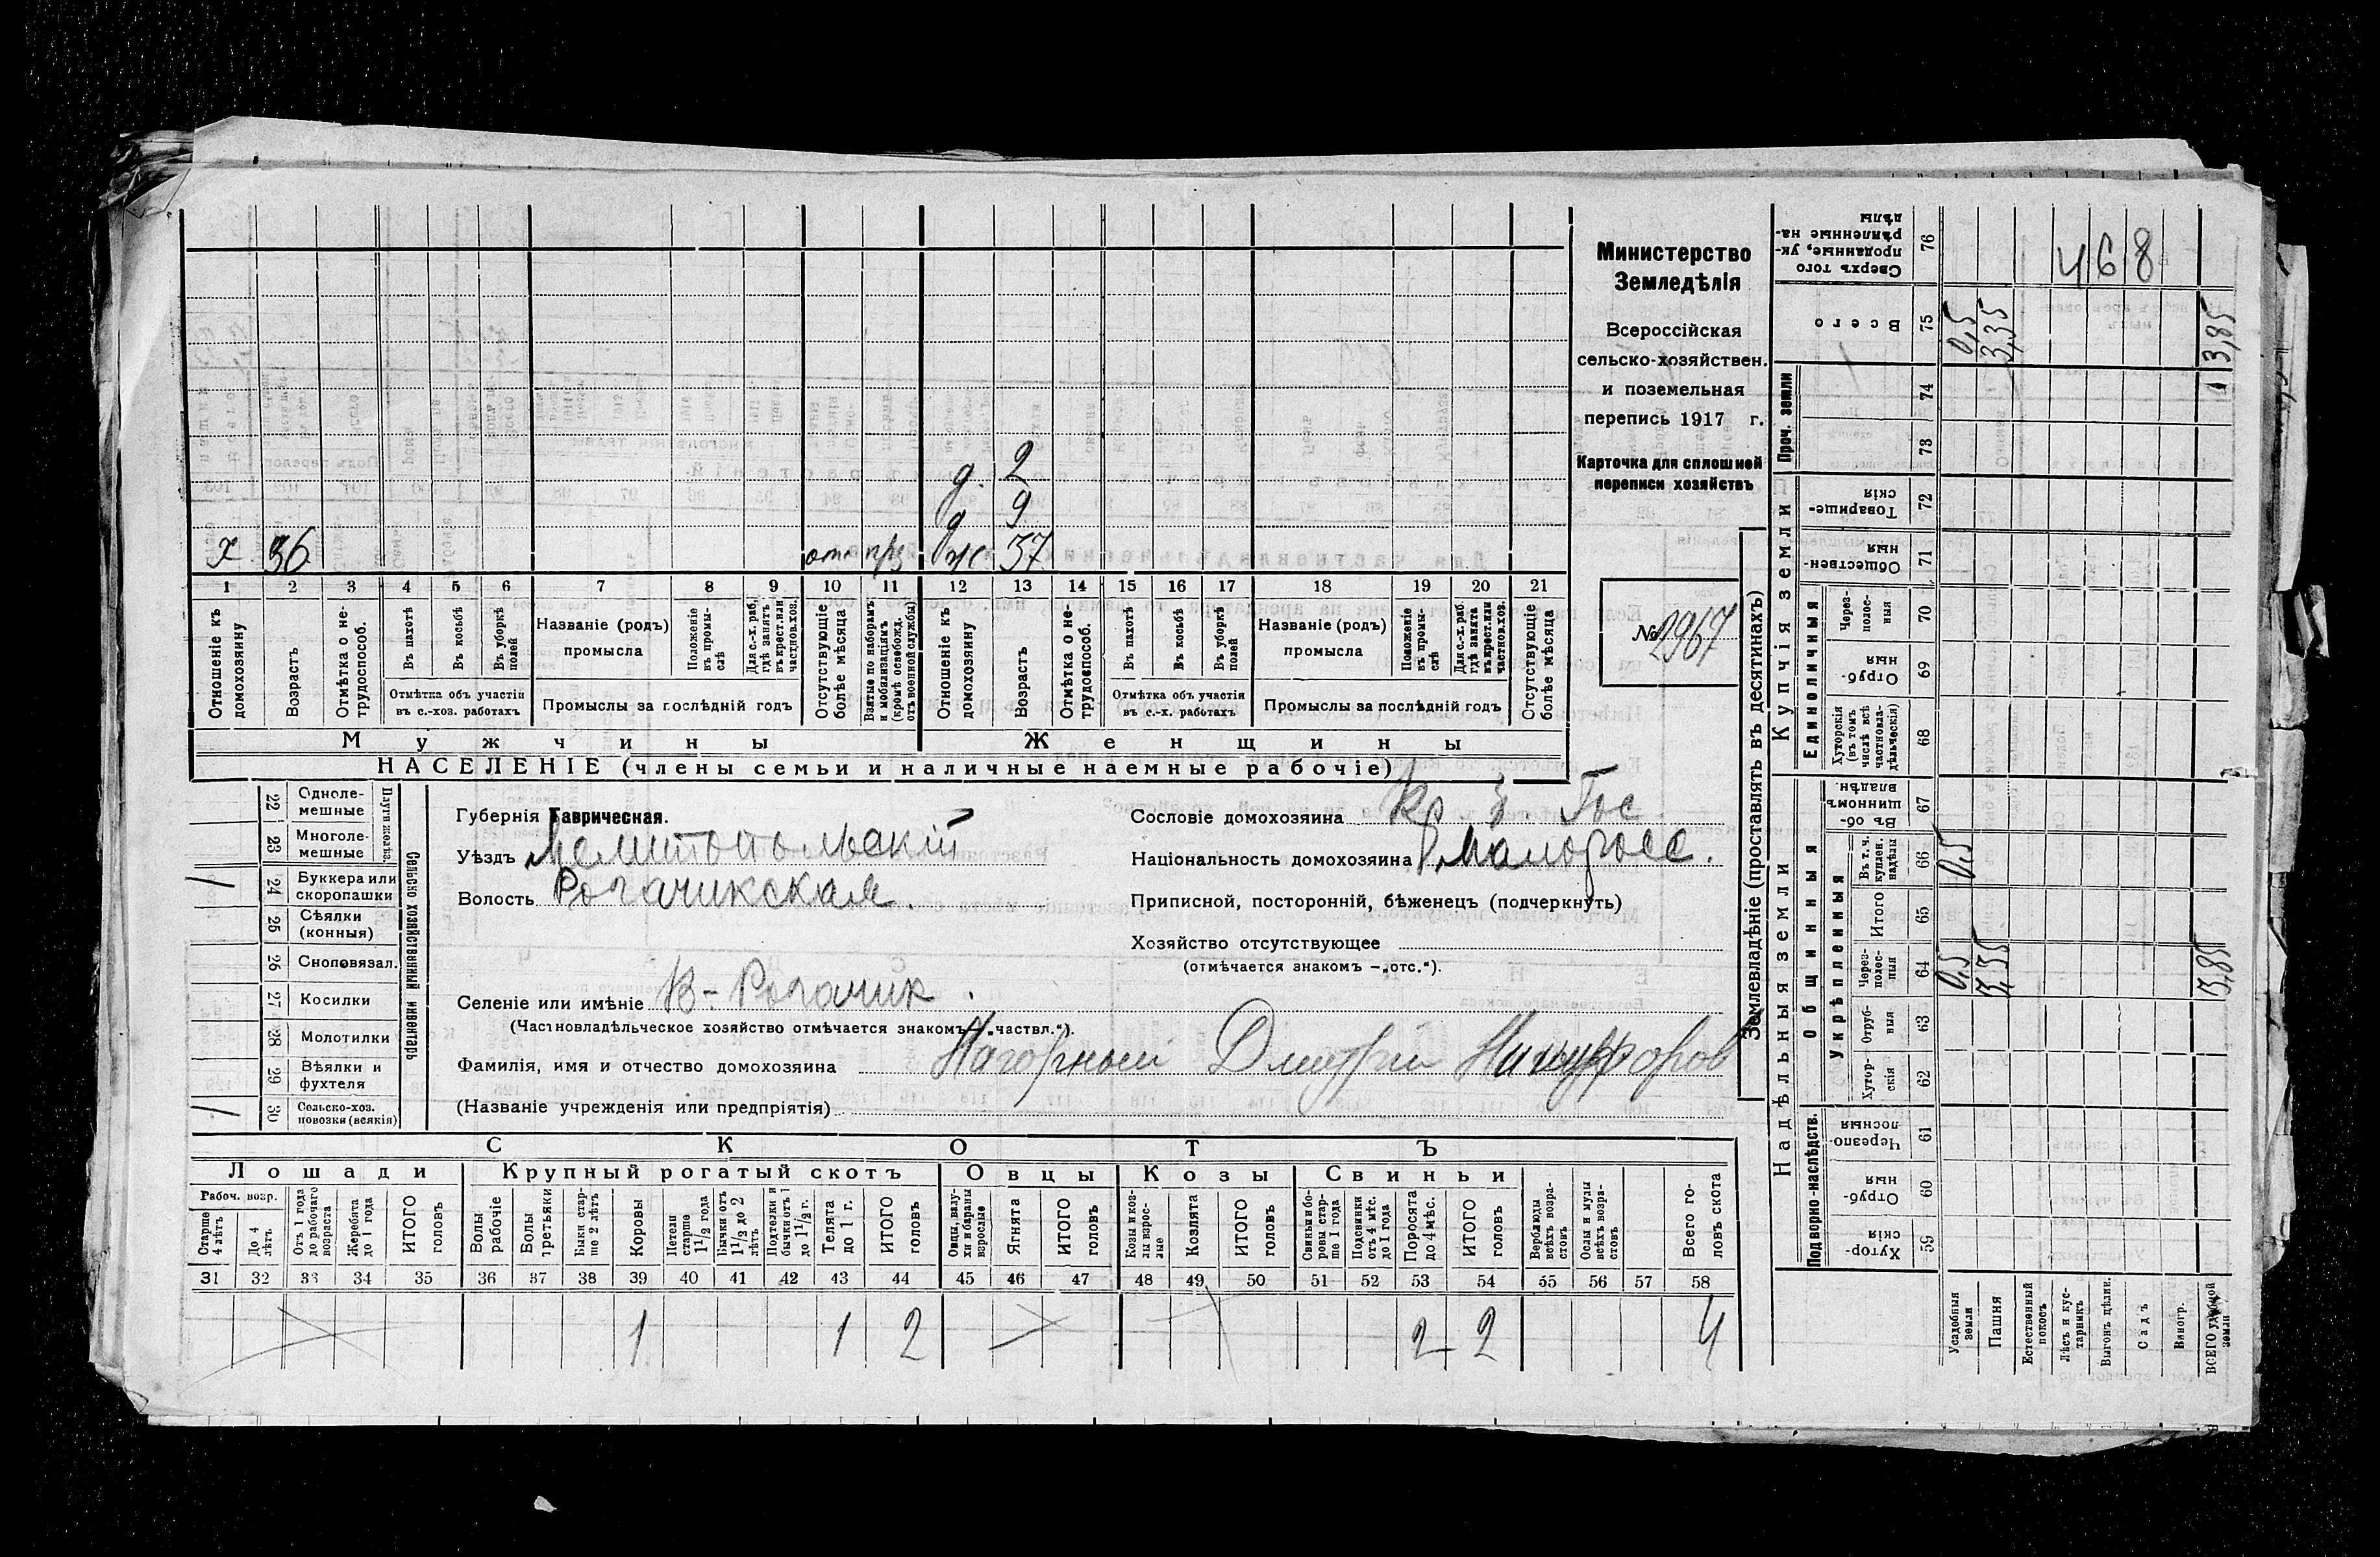 Министерство
Земледѣлія
Всероссійская
сельско-хозяйствен.
и поземельная
перепись 1917 г.
Карточка для сплошней
переписи хозяйствъ
№ 2967
д. 2
д 9
х 36 отс прз ж. 37
1 2 3 4 5 6 7 8 9 10 11 12 13 14 15 16 17 18 19 20 21
Отношеніе къ домохозяину
Возрастъ
Отмѣтка о нетрудоспособ.
Въ пахотѣ
Въ косьбѣ
Въ уборкѣ полей
Отмѣтка объ участіи
въ с.-хоз. работахъ
Названіе (родъ)
промысла
Положеніе въ промыслѣ
Для с.-х. раб, гдѣ занятъ въ крест.или частнов.хоз.
Промыслы за послѣдній годъ
Отсутствующіе болѣе мѣсяца
Взятые по наборамъ и мобилизаціямъ (кромѣ освобожд. отъ военной службы)
Отношеніе къ домохозяину
Возрастъ
Отмѣтка о нетрудоспособ.
Въ пахотѣ
Въ косьбѣ
Въ уборкѣ полей
Отмѣтка объ участіи
въ с.-х. работахъ
Названіе (родъ)
промысла
Положеніе въ промыслѣ
Для с.-х. раб. гдѣ занята въ крест.или частнов.хоз.
Промыслы за послѣдній годъ
Отсутствующіе болѣе мѣсяца
Мужчины Женщины
НАСЕЛЕНІЕ (члены семьи и наличные наемные рабочіе)
Сельско хозяйственный инвентарь
Плуги желѣз.
22 Одноле-
мешные
23 Многоле-
мешные
/ 24 Буккера или
скоропашки
25 Сѣялки
(конныя)
26 Сноповязал.
27 Косилки
28 Молотилки
29 Вѣялки и
фухтеля
/ 30 Сельско-хоз.
повозки (всякія)
Губернія Таврическая.
Уѣздъ Мелитопольскій
Волость Рогачикская.
Селеніе или имѣніе В-Рогачик.
(Частновладѣльческое хозяйство отмѣчается знакомъ-„частвл.“).
Фамилія, имя и отчество домохозяина Нагорный Дмитрій Никифоров
(Названіе учрежденія или предпріятія)
Сословіе домохозяина Кр. Гос
Національность домохозяина малоросс.
Приписной, посторонній, бѣженецъ (подчеркнуть)
Хозяйство отсутствующее
(отмѣчается знакомъ -„отс.“).
СКОТЪ
Лошади Крупный рогатый скотъ Овцы Козы Свиньи
Рабоч. возр.
Старше 4 лѣтъ
До 4 лѣтъ
Отъ 1 года до рабочаго возраста
Жеребята до 1 года
ИТОГО головъ
Волы рабочіе
Волы третьяки
Быки старше 2 лѣтъ
Коровы
Нетели старше 1½ года
Бычки отъ 1½ до 2 лѣтъ
Подтелки и бычки отъ 1 до 1½ г.
Телята до 1 г.
ИТОГО головъ
Овцы, валухи и бараны взрослые
Ягнята
ИТОГО головъ
Козы и козлы взрослые
Козлята
ИТОГО головъ
Свиньи и боровы старше 1 года
Подсвинки отъ 4 мѣс. до 1 года
Поросята до 4 мѣс.
ИТОГО головъ
Верблюды всѣхъ возрастовъ
Ослы и мулы всѣхъ возрастовъ
Всего головъ скота
31 32 33 34 35 36 37 38 39 40 41 42 43 44 45 46 47 48 49 50 51 52 53 54 55 56 57 58
1 1 2 2 2 4
Землевладѣніе (проставлять въ десятинахъ)
Надѣльныя земли Купчія земли Проч. земли
Подворно-наслѣдств.
Общинныя
Укрѣпленныя
Единоличныя
Сверхъ того проданные, укрѣпленные надѣлы 76 468
Всего 75 0,5 3,35 3,85
74
73
Товарищескія 72
Общественныя 71
Черезполосныя 70
Отрубныя 69
Хуторскія (въ томъ числѣ всѣ частновладѣльческія) 68
Въ общинномъ владѣн. 67
Въ т. ч. куплен. надѣлы 66 0,5
Итого 65
Черезполосныя 64 0,5 3,35 3,85
Отрубныя 63
Хуторскія 62
Черезполосныя 61
Отрубныя 60
Хуторскія 59
Усадебныя земли
Пашня
Естественный покосъ
Лѣсъ и кустарникъ
Выгонъ цѣлин.
Садъ
Виногр.
ВСЕГО удобной земли